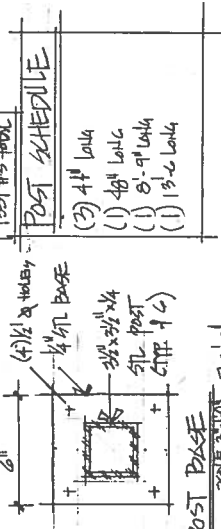 6"
(4) 1/2" Ø HOLES
1/4" STL BASE
3 1/2" x 3 1/2" x 1/4
STL POST
(TYP. of 6)
POST BASE
POST SCHEDULE
(3) 44" LONG
(1) 48" LONG
(1) 8'-9" LONG
(1) 13'-6 LONG